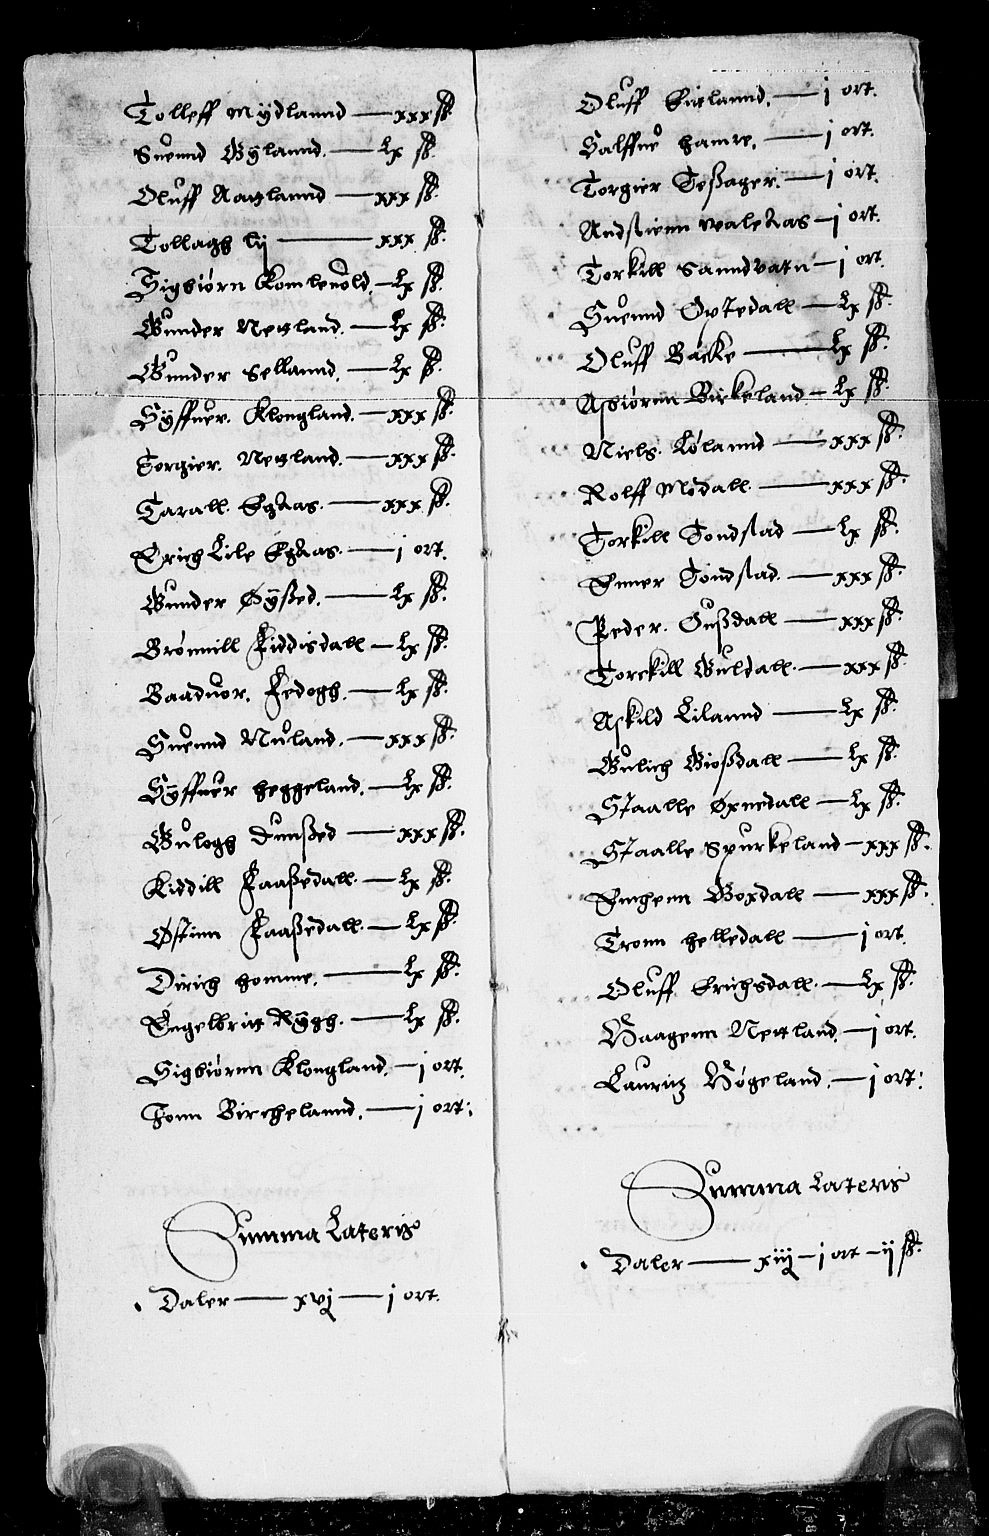 Tolleff Mÿdlannd — xxx ß.
Suennd Gÿlannd. — Lx ß.
Oluff Aaglannd — xxx ß.
Tollagh lij — xxx ß.
Sigbiørn Komleuold. — Lx ß.
Gunder Netland. — Lx ß.
Gunder Sellannd. — Lx ß.
Syffuer. Klongland. — xxx ß.
Torgier. Netland. — xxx ß.
Tarall. Egaas. — xxx ß.
Erich Lile Egaas. — j ort.
Gunder Øÿßed. — Lx ß.
Brønnill Fiddisdall — Lx ß.
Baaduor. Fedogh. — Lx ß.
Suennd Nuland. — xxx ß.
Sÿffuer heggeland. — Lx ß.
Gulogh Dunßed — xxx ß.
Kiddill Faaßedall. — Lx ß.
Østinn Faaßedall. — Lx ß.
Dirich homme. — Lx ß.
Engelbrit Rÿgh. — Lx ß.
Sigbiørnn Klongland. — j ort.
Jonn Birchelannd. — j ort:
Summa Lateris
Daler — xvj — j ort.
Oluff Eielannd. — j ort.
Salffue hamre. — j ort.
Torgier Toßager. — j ort.
Andstienn Waleaas — j ort.
Torkill Sanndvatn — j ort.
Suennd Optedall — Lx ß.
Oluff Backe — Lx ß.
Asbiørnn Birkeland — Lx ß.
Niels. Lølannd — xxx ß.
Rolff Modall. — xxx ß.
Torkill Tondstad — Lx ß.
Enner Tondstad. — xxx ß.
Peder. Gußdall — xxx ß.
Torckill Guldall. — xxx ß.
Askild Lilannd — Lx ß.
Gulich Gioßdall — Lx ß.
Staalle Øxnedall — Lx ß.
Staalle Spurkeland — xxx ß.
Enghenn Goxdall — xxx ß.
Tronn helledall — j ort.
Oluff Erichsdall. — Lx ß.
Vaagenn Nettland. — j ort.
Lauritz Høgeland. — j ort:
Summa Lateris
Daler — xiij — j ort — ij ß.